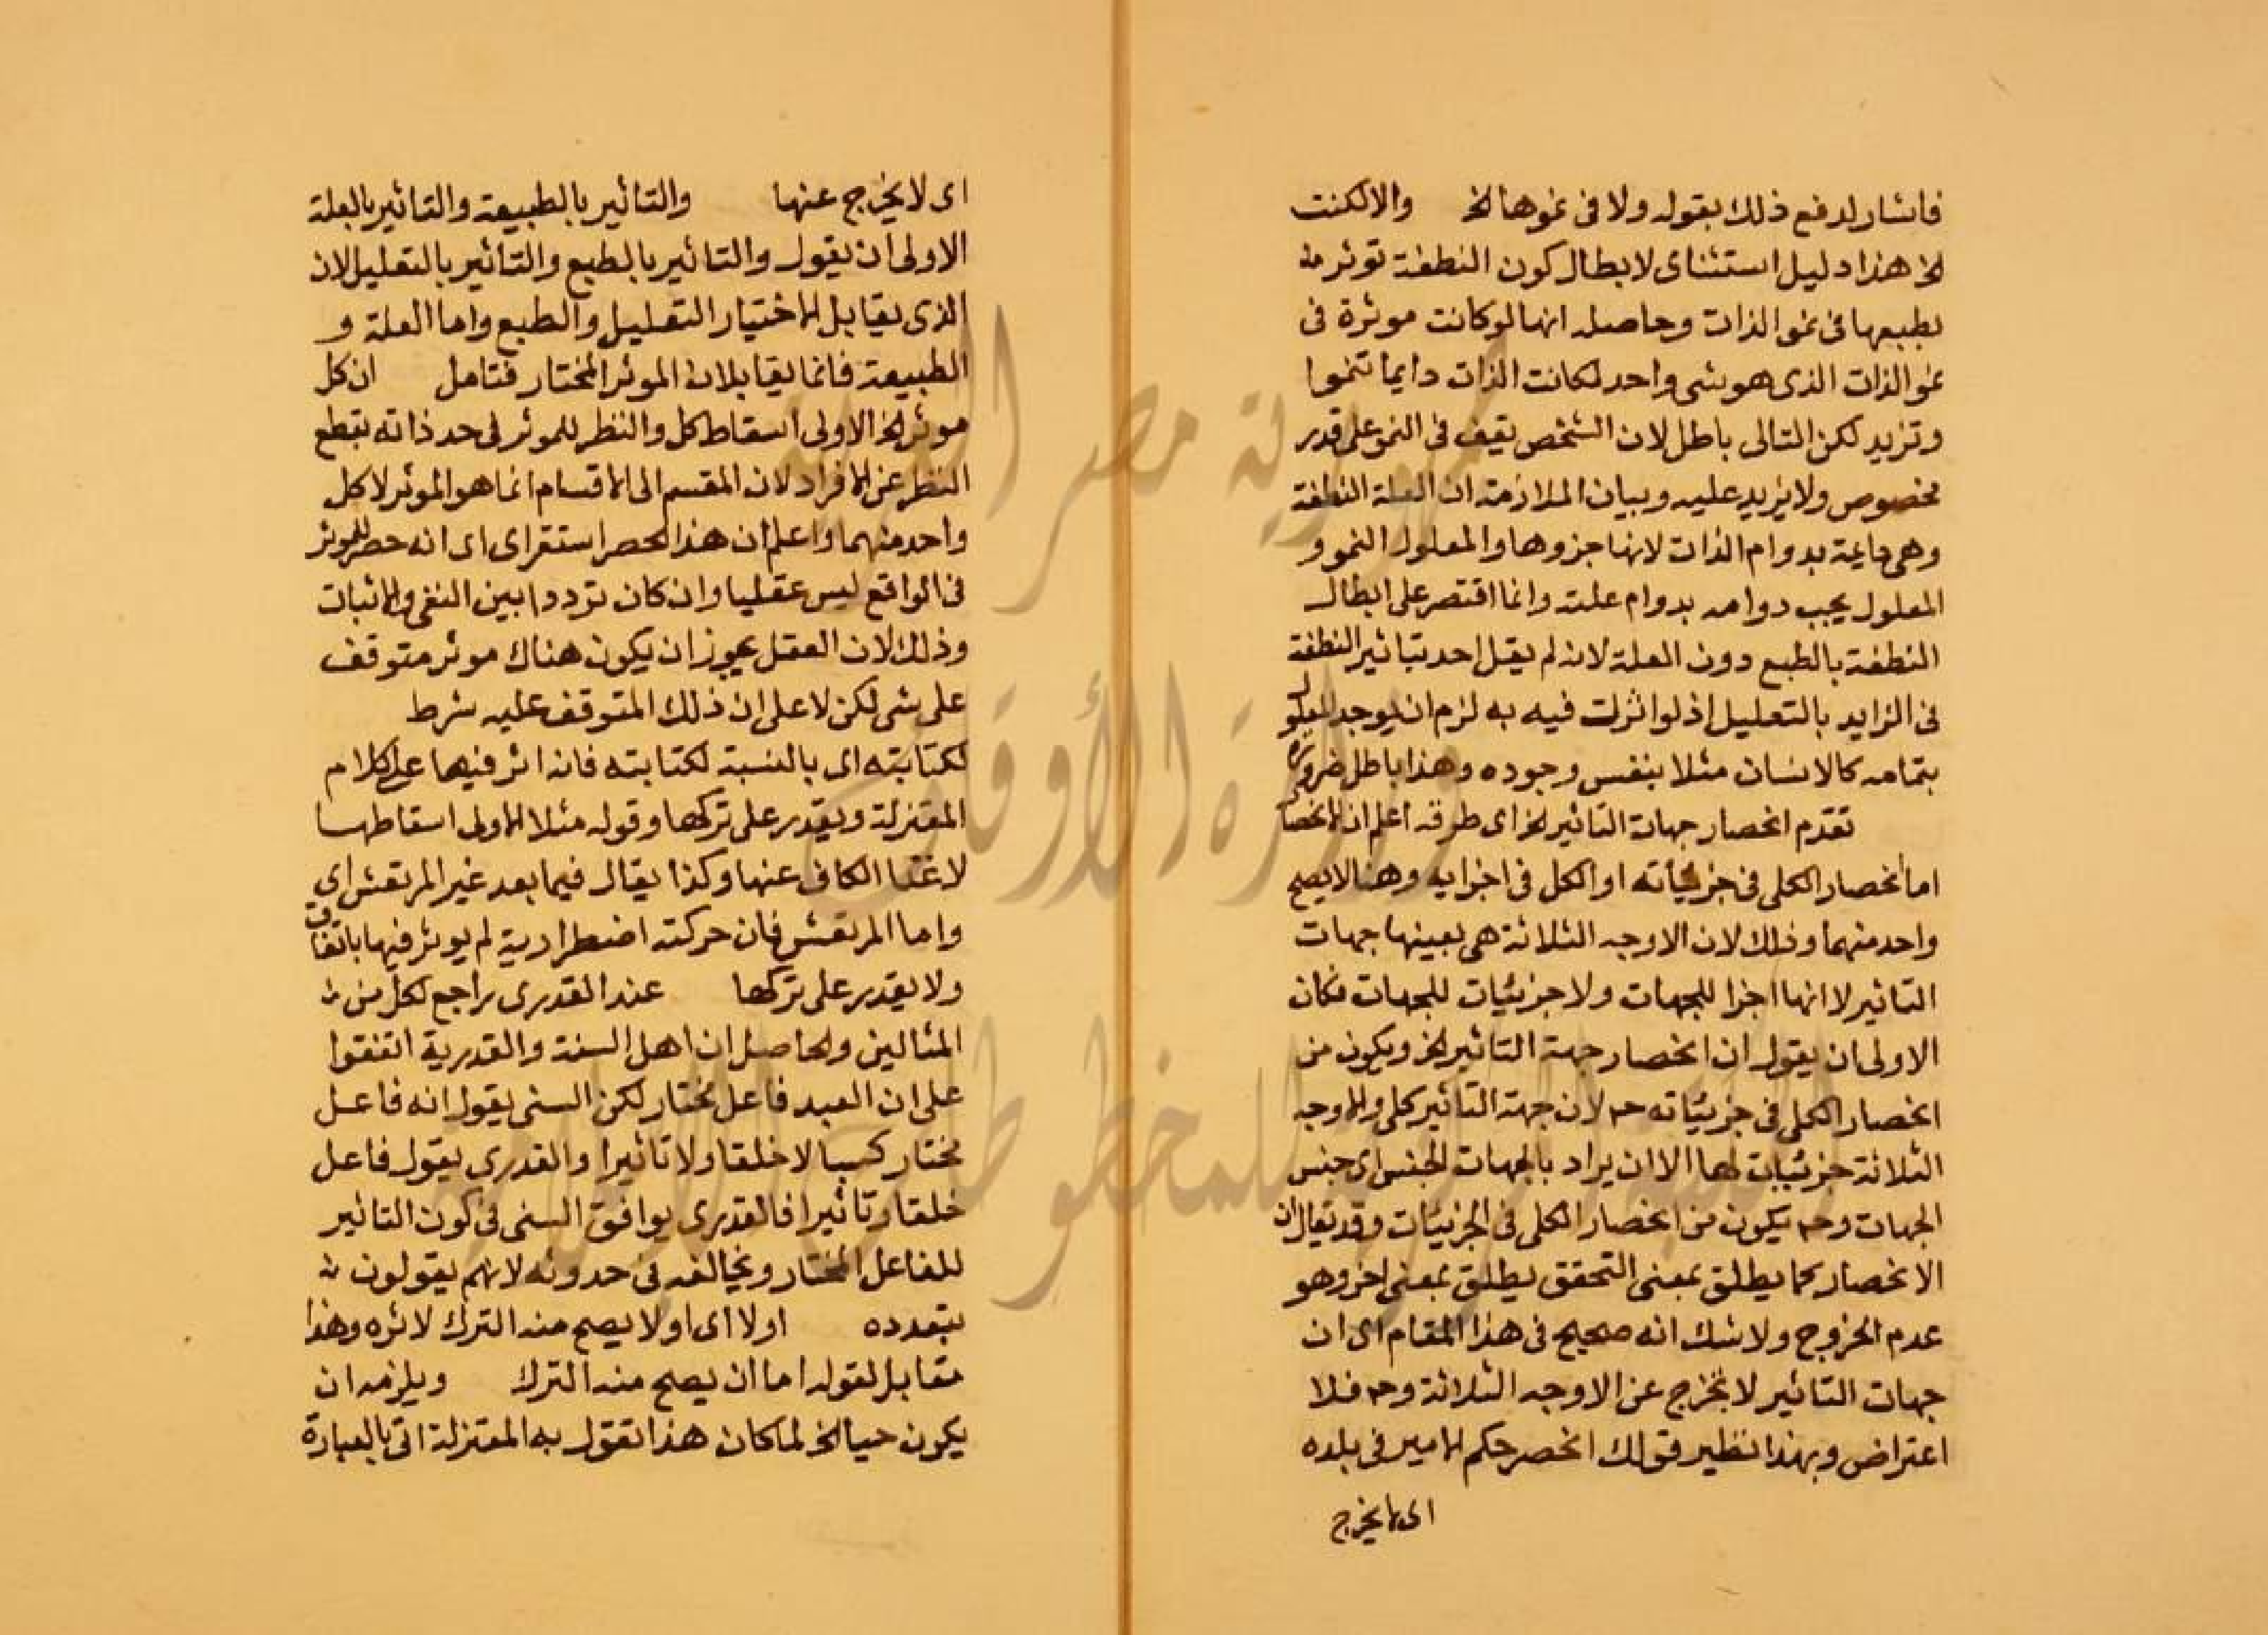 فاشار لدفع ذلك بقوله ولا في نموها الخ والا لكنت
الخ هذا دليل استثناى لابطال كون النطفة توثر
بطبعها فى نمو الذات وحاصله انها لو كانت موثرة فى
نمو الذات الذى هو شى واحد لكانت الذات دايما تنموا
وتزيد لكن التالى باطل لان الشخص يقف فى النمو على قدر
مخصوص ولا يزيد عليه وبيان الملازمة ان العلة النطفة
وهى دايمة بدوام الذات لانها جزوها والمعلول النمو و
المعلول يجب دوامه بدوام علته وانما اقتصر على ابطال
النطفة بالطبع دون العلة لانه لم يقل احد بتاثير النطفة
فى الزايد بالتعليل اذ لو اثرت فيه به لزم ان يوجد المعلول
بتمامه كالانسان مثلا بنفس وجوده وهذا باطل ضرورة
تقدم انحصار جهات التاثير الخ اى طرقه اعلم ان الانحصار
اما انحصار الكلى فى جزئياته او الكل فى اجزايه وهنا لا يصح
واحد منهما وذلك لان الاوجه الثلاثة هى بعينها جهات
التاثير لا انها اجزا للجهات ولا جزئيات للجهات فكان
الاولى ان يقول ان انحصار جهة التاثير الخ ويكون من
انحصار الكلى فى جزئياته حـ لان جهة التاثير كلى والاوجه
الثلاثة جزئيات لها الا ان يراد بالجهات الجنس اى جنس
الجهات وحـ يكون من انحصار الكلى فى الجزئيات وقد يقال ان
الانحصار كما يطلق بمعنى التحقق يطلق بمعنى اخر وهو
عدم الخروج ولا شك انه صحيح فى هذا المقام اى ان
جهات التاثير لا تخرج عن الاوجه الثلاثة وحـ فلا
اعتراض وبهذا نظير قولك انحصر حكم الامير فى بلده
اى لا يخرج
اى لا يخرج عنها والتاثير بالطبيعة والتاثير بالعلة
الاولى ان يقول والتاثير بالطبع والتاثير بالتعليل لان
الذى يقابل الاختيار التعليل والطبع واما العلة و
الطبيعة فانما يقابلان الموثر المختار فتامل ان كل
موثر الخ الاولى اسقاط كل والنظر للموثر فى حد ذاته بقطع
النظر عن الافراد لان المقسم الى الاقسام انما هو الموثر لا كل
واحد منهما واعلم ان هذا الحصر استقراى اى انه حصر للموثر
فى الواقع ليس عقليا وان كان ترددا بين النفى والاثبات
وذلك لان العقل يجوز ان يكون هناك موثر متوقف
على شى لكن لا على ان ذلك المتوقف عليه شرط
لكتابته اى بالنسبة لكتابته فانه اثر فيها على كلام
المعتزلة ويقدر على تركها وقوله مثلا الاولى اسقاطها
لاغنا الكاف عنها وكذا يقال فيما بعد غير المرتعش اى
واما المرتعش فان حركته اضطرارية لم يوثر فيها باتفاق
ولا يقدر على تركها عند القدرى راجع لكل من
المثالين والحاصل ان اهل السنة والقدرية اتفقوا
على ان العبد فاعل مختار لكن السنى يقول انه فاعل
مختار كسبا لا خلقا ولا تاثيرا والقدرى يقول فاعل
خلقا وتاثيرا فالقدرى يوافق السنى فى كون التاثير
للفاعل المختار ويخالفه فى حدوثه لانهم يقولون
بتعدده اولا اى او لا يصح منه الترك لاثره وهذا
مقابل لقوله اما ان يصح منه الترك ويلزمه ان
يكون حيا الخ لما كان هذا تقول به المعتزلة اتى بالعبارة